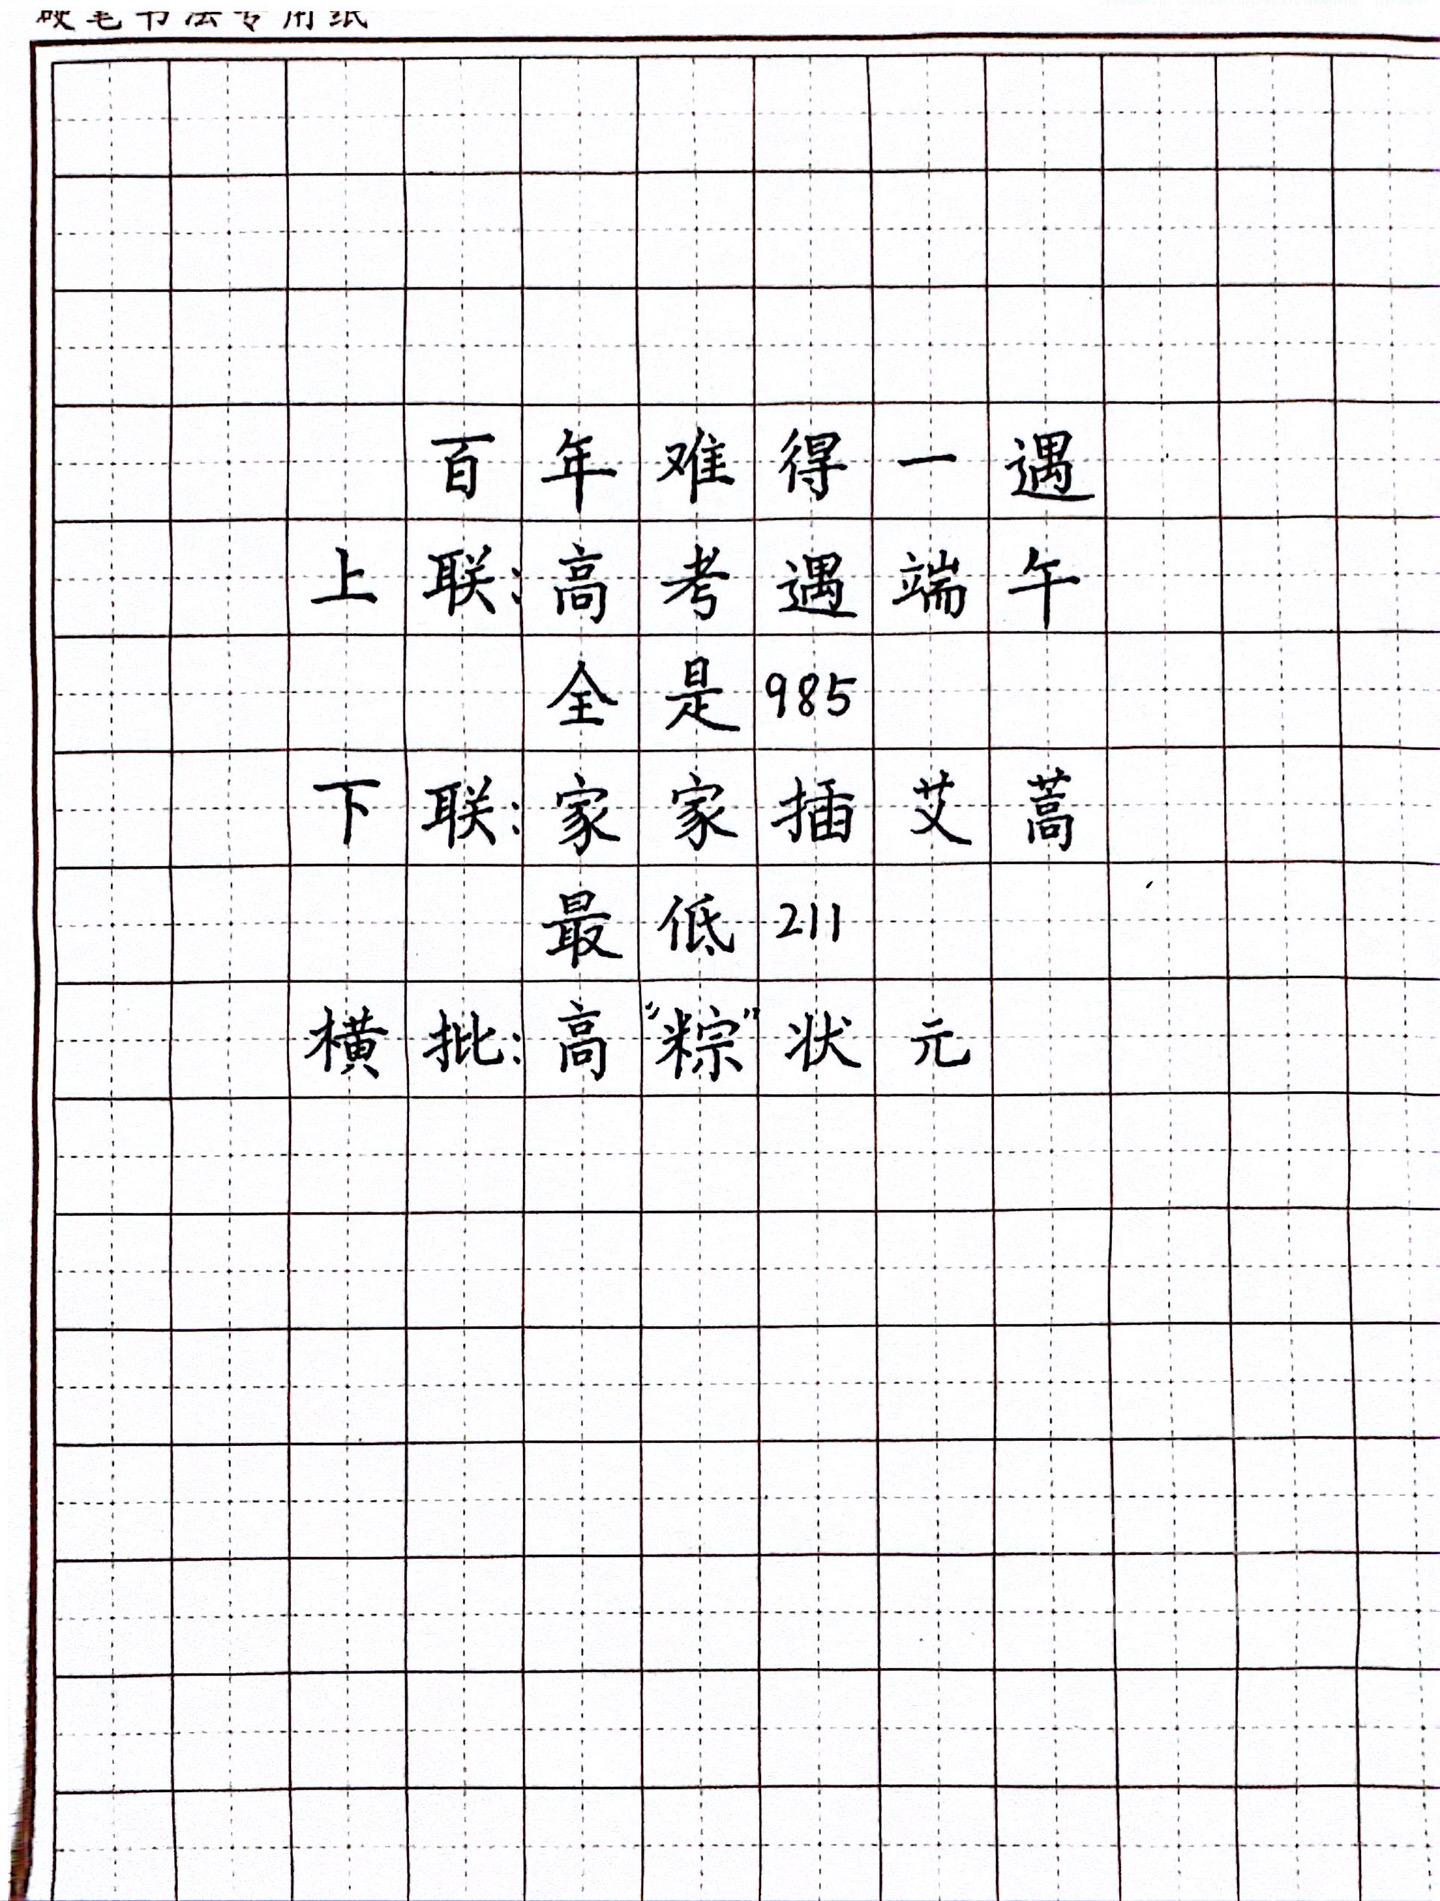 硬笔书法专用纸
百年难得一遇
上联:高考遇端午
全是985
下联:家家插艾蒿
最低211
横批:高“粽”状元